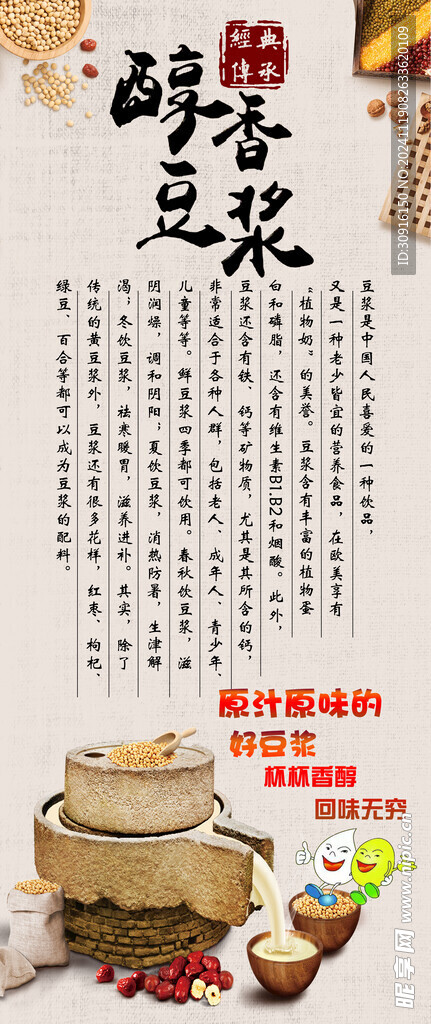 經典
傳承
醇香
豆浆
豆浆是中国人民喜爱的一种饮品，
又是一种老少皆宜的营养食品，在欧美享有
“植物奶”的美誉。豆浆含有丰富的植物蛋
白和磷脂，还含有维生素B1.B2和烟酸。此外，
豆浆还含有铁、钙等矿物质，尤其是其所含的钙，
非常适合于各种人群，包括老人、成年人、青少年、
儿童等等。鲜豆浆四季都可饮用。春秋饮豆浆，滋
阴润燥，调和阴阳；夏饮豆浆，消热防暑，生津解
渴；冬饮豆浆，祛寒暖胃，滋养进补。其实，除了
传统的黄豆浆外，豆浆还有很多花样，红枣、枸杞、
绿豆、百合等都可以成为豆浆的配料。
原汁原味的
好豆浆
杯杯香醇
回味无穷
ID:30916150 NO.20241119082633620109
昵享网 www.nipic.cn